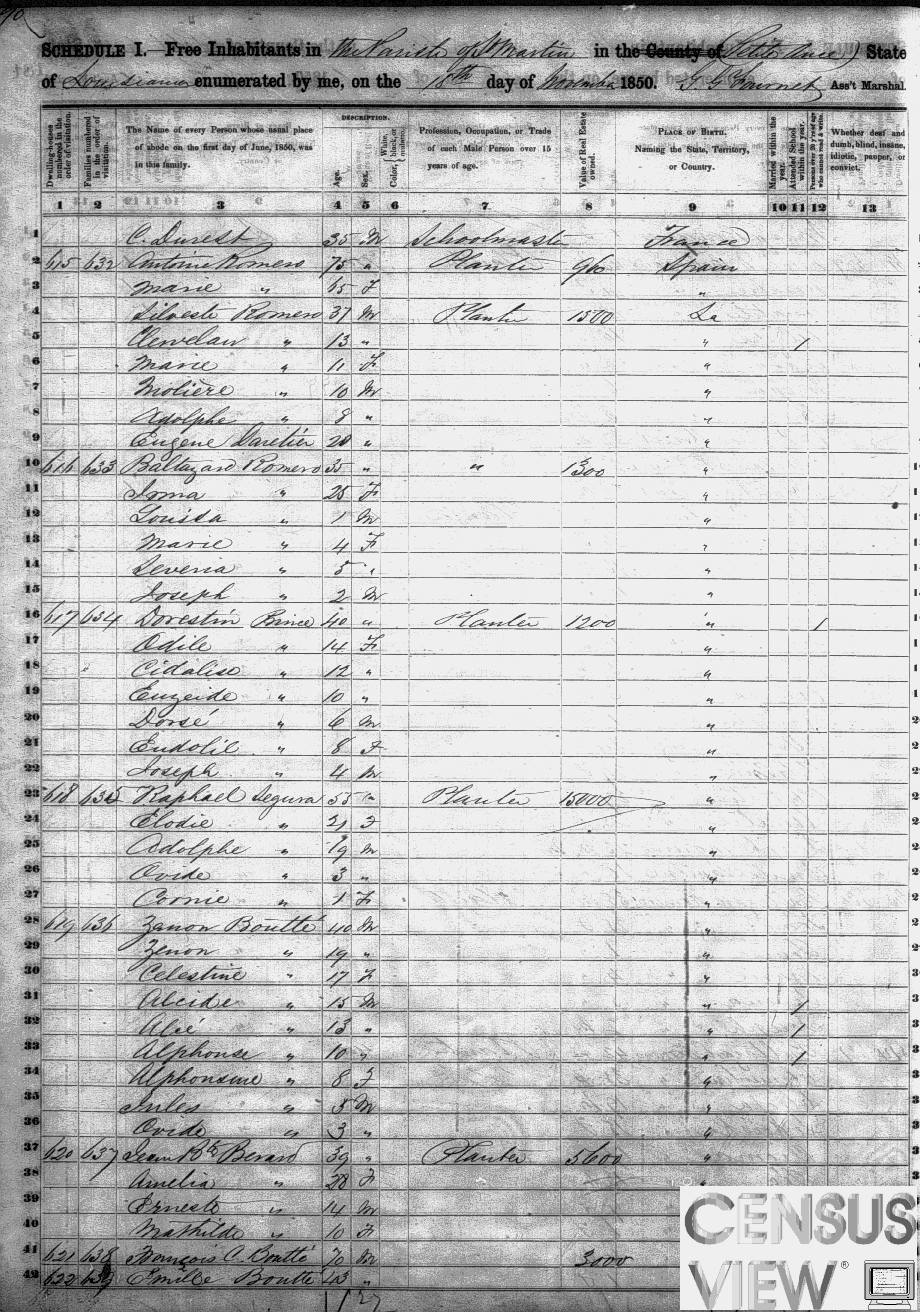 SCHEDULE I.—Free Inhabitants in the Parish of St Martin in the County of (Petite Anse) State
of Louisiana enumerated by me, on the 18th day of November 1850. Ass't Marshal.
DESCRIPTION.
Dwelling-houses numbered in the order of visitation.
Families numbered in the order of visitation.
The Name of every Person whose usual place of abode on the first day of June, 1850, was in this family.
Age.
Sex.
Color, White, black, or mulatto.
Profession, Occupation, or Trade of each Male Person over 15 years of age.
Value of Real Estate owned.
PLACE OF BIRTH. Naming the State, Territory, or Country.
Married within the year.
Attended School within the year.
Persons over 20 y'rs of age who cannot read & write.
Whether deaf and dumb, blind, insane, idiotic, pauper, or convict.
1 2 3 4 5 6 7 8 9 10 11 12 13
1 C. Durest 35 M Schoolmaster France
2 615 632 Antoine Romero 75 " Planter 960 Spain
3 Marie " 65 F "
4 Silveste Romero 37 M Planter 1500 La
5 " 13 " " /
6 Marie " 11 F "
7 Molière " 10 M "
8 Adolphe " 8 " "
9 Eugene Daretier 20 " "
10 616 633 Baltazard Romero 35 " " 1300 "
11 Irma " 25 F "
12 Louisa " 1 M "
13 Marie " 4 F "
14 Severia " 5 " "
15 Joseph " 2 M "
16 617 634 Dorestin Prince 40 " Planter 1200 " /
17 Odile " 14 F "
18 Cidalise " 12 " "
19 Euzeide " 10 " "
20 Dorsé " 6 M "
21 Eudolie " 8 F "
22 Joseph " 4 M "
23 618 635 Raphael Segura 55 " Planter 15000 "
24 Elodie " 21 F "
25 Adolphe " 19 M "
26 Ovide " 3 " "
27 " 1 F "
28 619 636 Zanon Boutté 40 M "
29 Zenon " 19 " "
30 Celestine " 17 F "
31 Alcide " 15 M " /
32 Alcé " 13 " " /
33 Alphonse " 10 " " /
34 Alphonsine " 8 F "
35 Jules " 5 M "
36 Ovide " 3 " "
37 620 637 Jean Bte Berard 39 " Planter 5600 "
38 Amelia " 28 F "
39 Erneste " 14 M
40 Mathilde " 10 F
41 621 638 François C. Boutté 70 M 3000
42 622 639 Emille Boutte 43 "
CENSUS
VIEW®